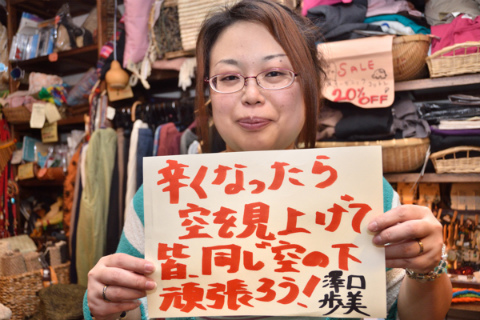 SALE
20%OFF
辛くなったら
空を見上げて
皆、同じ空の下
頑張ろう!
澤口
歩美